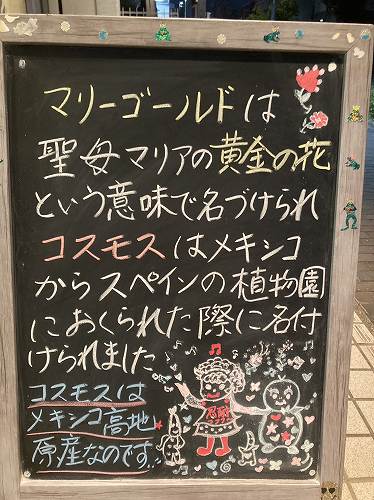 マリーゴールドは
聖母マリアの黄金の花
という意味で名づけられ
コスモスはメキシコ
からスペインの植物園
におくられた際に名付
けられました
コスモスは
メキシコ高地
原産なのです。